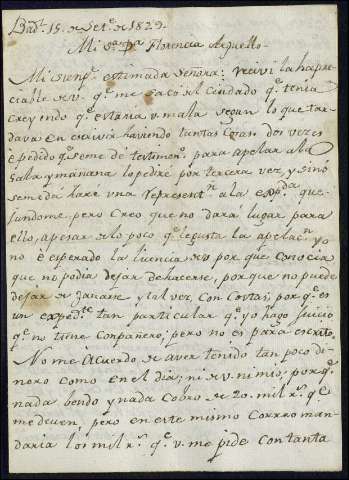 Bad.t 15. de Set.e de 1829.
Mi S.ra D.a Florencia Arguello.
Mi siemp.e estimada Señora: recivi la hapre
ciable de v. q.e me saco del Cuidado q.e tenia
creyendo q.e estaria v. mala segun lo que tar
dava en escrivir haviendo tantas cosas dos vezes
e pedido q.e se me de testimon.o para apelar a la
Salla y mañana lo pedire por tercera vez, y si nó
se me dá haré vna represent.n a la que
fundome, pero Creo que no dará lugar para
ello, apesar de lo poco q.e le gusta la apelac.n yo
no é esperado la licencia de v. por que conocia
que no podia dejar de hacerse, porque no puede
dejar de ganarse y tal vez, con Costas, por q.e es
un exped.te tan particular q.e yo hago juicio
q.e no tiene Conpañero, pero no es para escrito.
No me Acuerdo de aver tenido tan poco di
nero como en el dia; ni de v. ni mio; por q.e
nada bendo y nada Cobro de 20. mil r.s q.e
me deven, pero en este mismo Correo man
daria los mil r.s q.e v. me pide con tanta